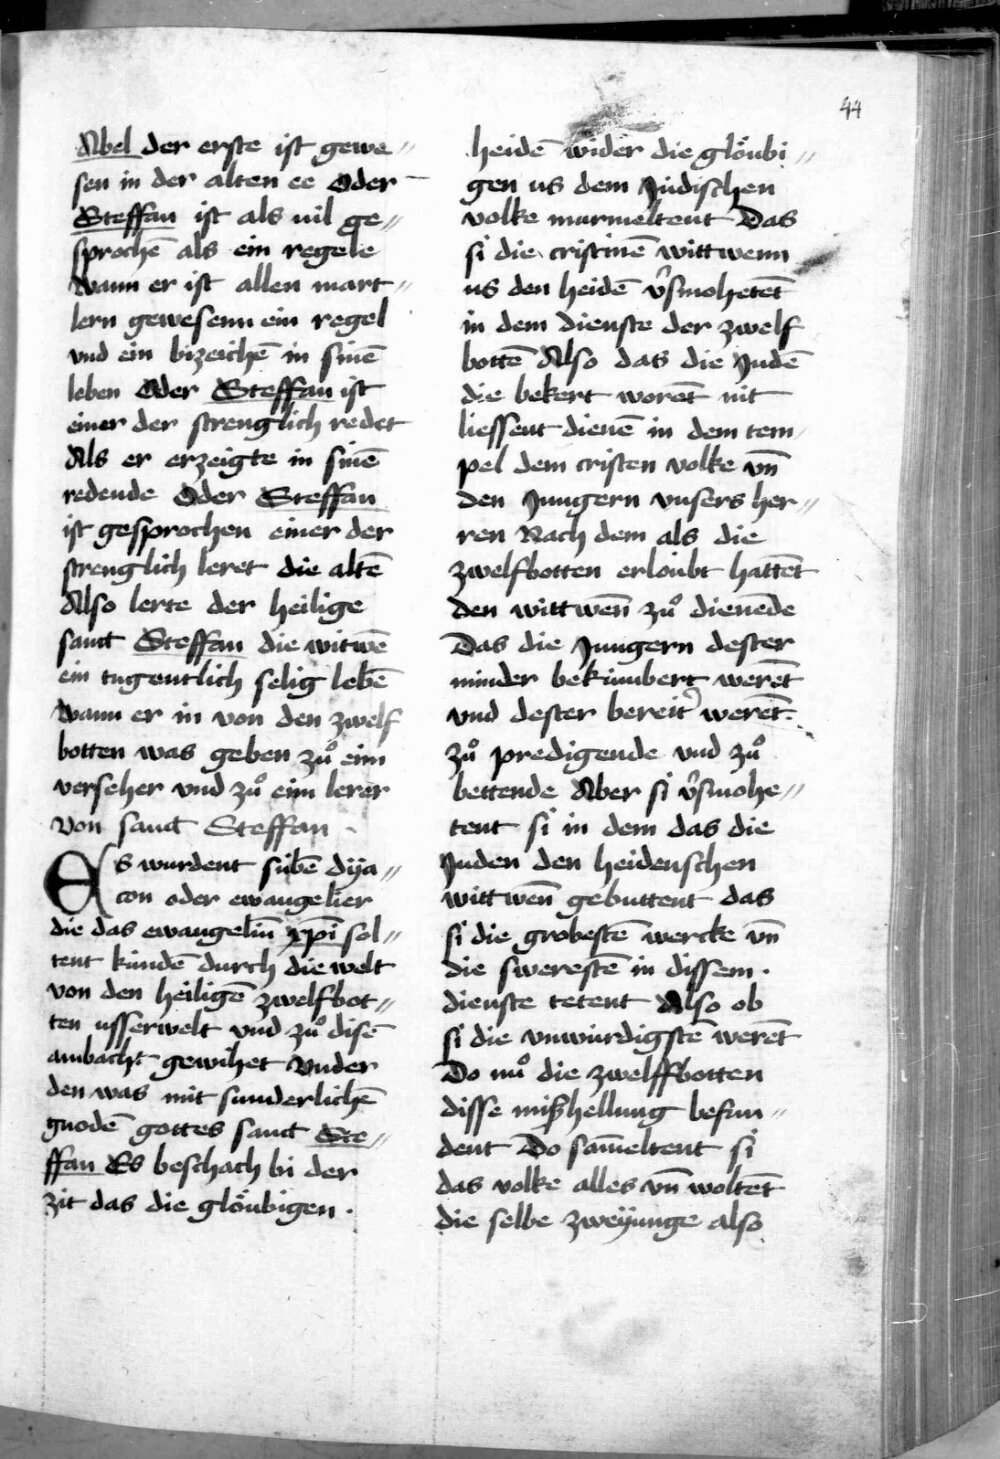 44
Abel der erste ist gewe⸗
sen in der alten ee Oder
Steffan ist als uil ge⸗
sprochē als ein regele
wann er ist allen mart⸗
lern gewesenn ein regel
vnd ein bizeichē in sinē
leben Oder Steffan ist
einer der strenglich redet
Als er erzeigte in sinē
redende Oder Steffan
ist gesprochen einer der
strenglich leret die altē
Also lerte der heilige
sanct Steffan die witwē
ein tugentlich selig lebē
wann er in von den zwelf
botten was geben zuͦ eim
verseher vnd zuͦ eim lerer
von sanct Steffan
Es wurdent sibē dya⸗
con oder ewangelier
die das ewangeliū xp̄i sol⸗
tent kündē durch die welt
von den heiligē zwelfbot⸗
ten usserwelt vnd zuͦ disē
ambacht gewihet Vnder
den was mit sunderlichē
gnodē gottes sanct Ste⸗
ffan Es beschach bi der
zit das die glöubigen
heidē wider die glöubi⸗
gen us dem Jüdischen
volke murmeltent Das
si die cristinē wittwenn
us den heidē v̓smohetēt
in dem dienste der zwelf
bottē Also das die Judē
die bekert worēt nit
liessent dienē in dem tem
pel dem cristen volke vn̄
den Jungern vnsers her⸗
ren Nach dem als die
zwelfbotten erloubt hattēt
den wittwēn zuͦ dienēde
Das die Jungern dester
minder bekümbert werēt
vnd dester bereit̓ werēt
zuͦ predigende vnd zuͦ
bettende Aber si v̓smohe⸗
tent si in dem das die
Juden den heidenschen
wittwēn gebuttent das
si die grobestē wercke vn̄
die swerestē in dissem
dienste tetent Also ob
si die vnwürdigstē werēt
Do nuͦ die zwelffbotten
disse mißhellung befun⸗
dent Do sām̄eltent si
das volke alles vn̄ woltēt
die selbe zweyunge also